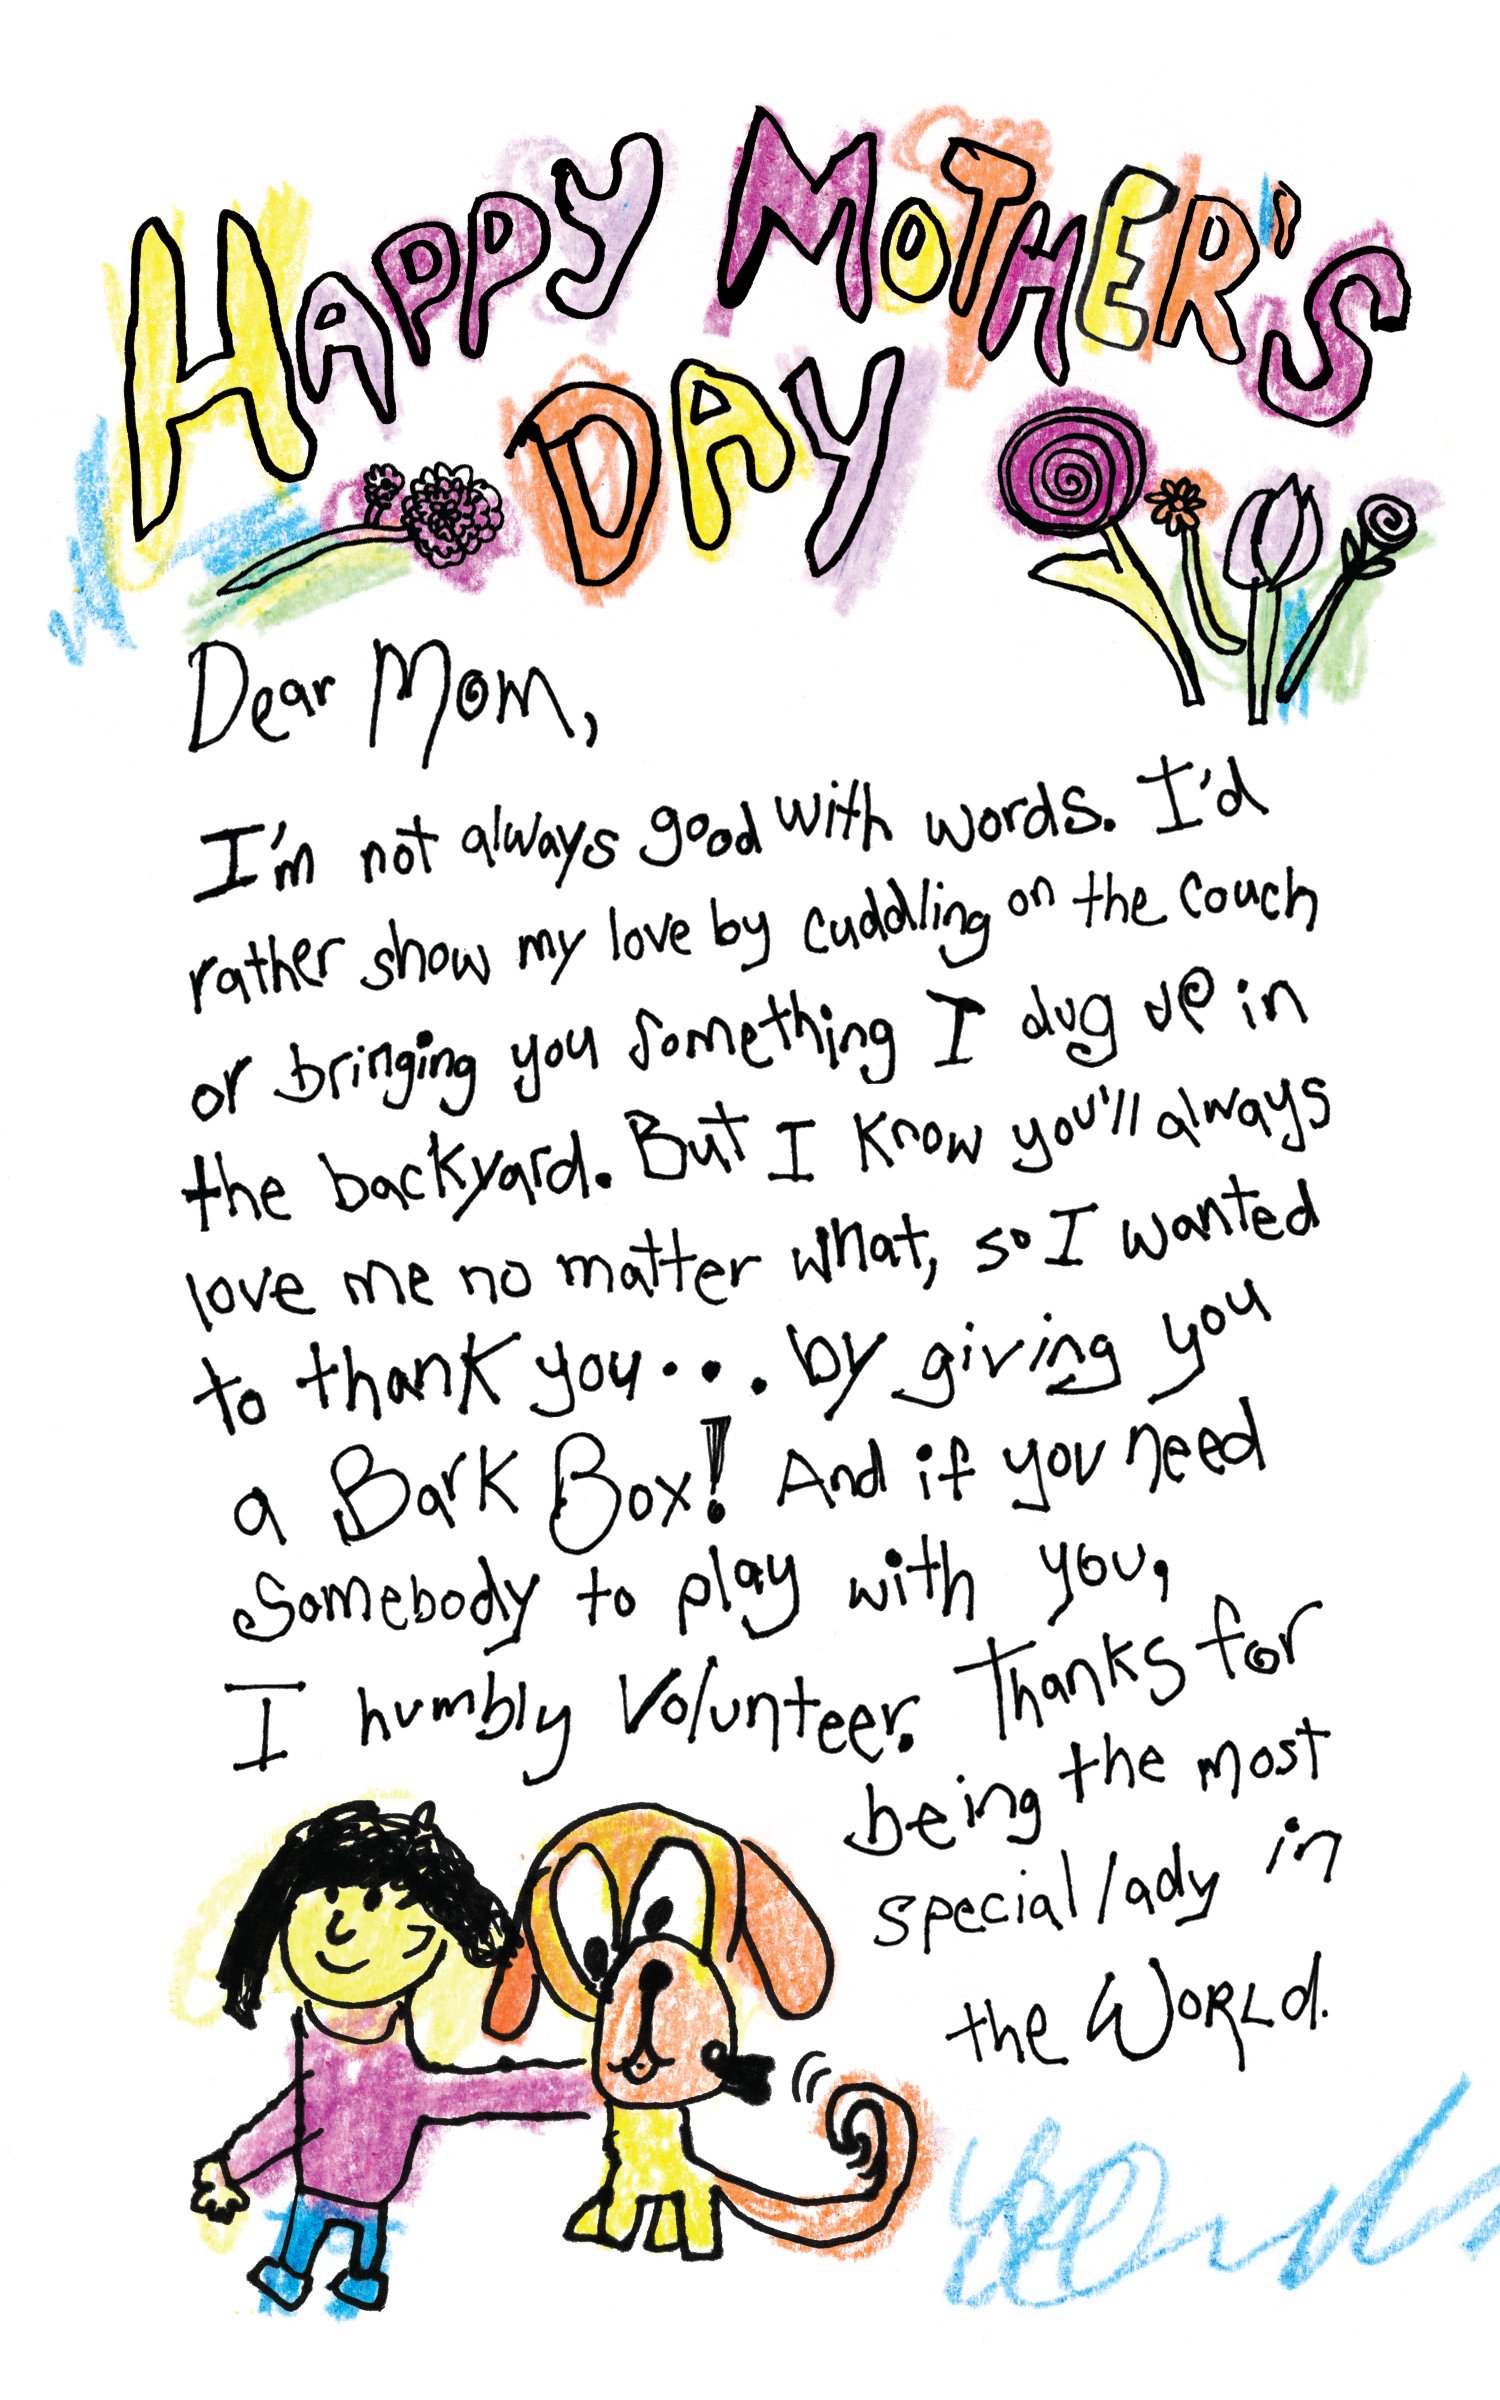 HAPPY MOTHER'S
DAY
Dear Mom,
I'm not always good with words. I'd
rather show my love by cuddling on the couch
or bringing you something I dug up in
the backyard. But I know you'll always
love me no matter what, so I wanted
to thank you... by giving you
a Bark Box! And if you need
Somebody to play with you,
I humbly Volunteer. Thanks for
being the most
special lady in
the WORLd.